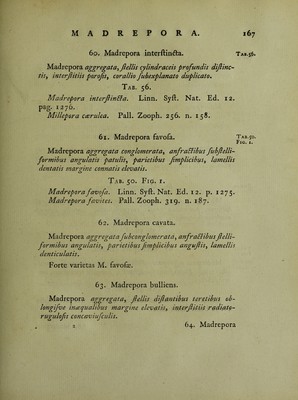 MADREPORA. 167
60. Madrepora interſtincta. Tab. 56.
Madrepora aggregata, ſtellis cylindraceis profundis diſtinc-
tis, interſtitiis poroſis, corallio ſubexplanato duplicato.
Tab. 56.
Madrepora interſtincta. Linn. Syſt. Nat. Ed. 12.
pag. 1276.
Millepora cærulea. Pall. Zooph. 256. n. 158.
61. Madrepora favoſa. Tab. 50.
Fig. 1.
Madrepora aggregata conglomerata, anfractibus ſubſtelli-
formibus angulatis patulis, parietibus ſimplicibus, lamellis
dentatis margine connatis elevatis.
Tab. 50. Fig. 1.
Madrepora favoſa. Linn. Syſt. Nat. Ed. 12. p. 1275.
Madrepora favites. Pall. Zooph. 319. n. 187.
62. Madrepora cavata.
Madrepora aggregata ſubconglomerata, anfractibus ſtelli-
formibus angulatis, parietibus ſimplicibus anguſtis, lamellis
denticulatis.
Forte varietas M. favoſæ.
63. Madrepora bulliens.
Madrepora aggregata, ſtellis diſtantibus teretibus ob-
longiſve inæqualibus margine elevatis, interſtitiis radiato-
ruguloſis concaviuſculis.
2 64. Madrepora